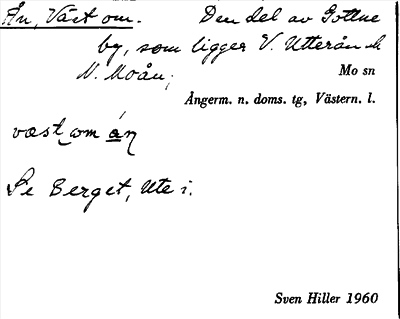 Ån, Väst om. Den del av Gottne
by, som ligger V. Utterån o
N. Moån;
Mo sn
Ångerm. n. doms. tg, Västern. l.
væst om án
Se Berget, Ute i.
Sven Hiller 1960